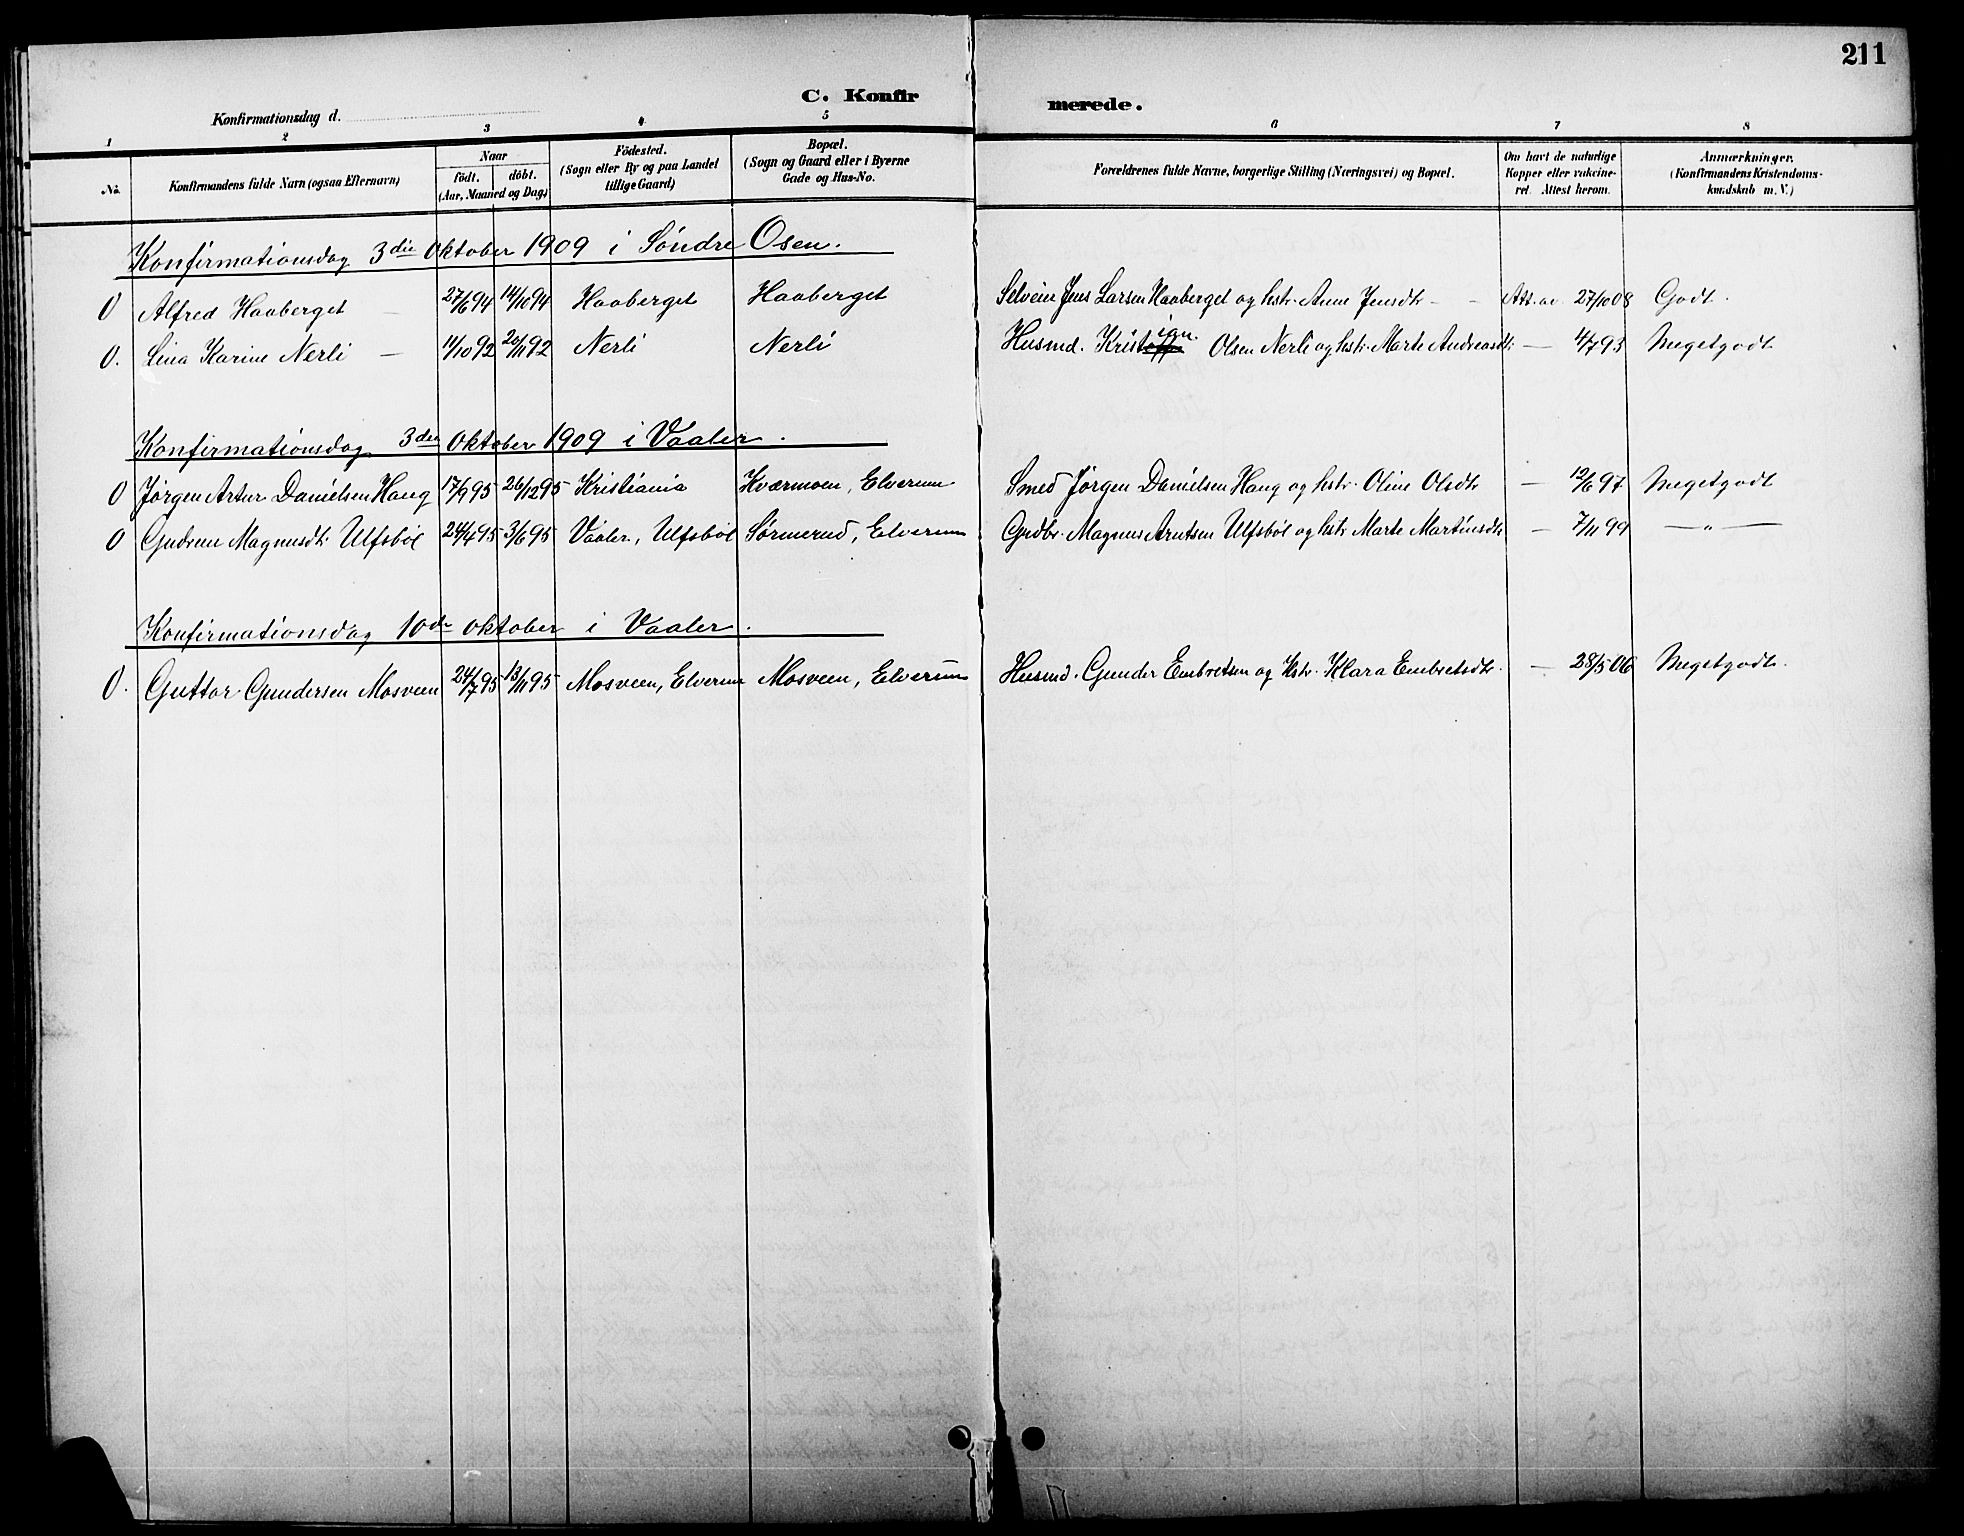 211
C. Konfirmerede.
Konfirmationsdag d.
1 2 3 4 5 6 7 8
No. Konfirmandens fulde Navn (ogsaa Efternavn) Naar födt. döbt. (Aar, Maaned og Dag) Födested. (Sogn eller By og paa Landet tillige Gaard) Bopæl. (Sogn og Gaard eller i Byerne Gade og Hus-No. Forældrenes fulde Navne, borgerlige Stilling (Næringsvei) og Bopæl. Om havt de naturlige Kopper eller vakcineret. Attest herom. Anmærkninger. (Konfirmandens Kristendomskundskab m. V.)
Konfirmationsdag 3die Oktober 1909 i Søndre Osen.
0 Alfred Haaberget — 27/6 94 14/10 94 Haaberget Haaberget Selveier Jens Larsen Haaberget og hstr. Anne Jensdtr — Att. av 27/10 08 Godt.
0. Lina Karine Nerli — 11/10 92 20/11 92 Nerli Nerli Husmd. Kristian Olsen Nerli og hstr. Marte Andreasdtr — 4/7 93 Megetgodt
Konfirmationsdag 3die Oktober 1909 i Vaaler.
0 Jørgen Artur Danielsen Haug 17/9 95 26/12 95 Kristiania Kværmoen, Elverum Smed Jørgen Danielsen Haug og hstr. Oline Olsdtr — 12/6 97 Megetgodt
0 Gudrun Magnusdtr Ulfsböl 24/4 95 3/6 95 Vaaler, Ulfsböl Sørmerud, Elverum Gudbr. Magnus Arntsen Ulfsböl og hstr Marte Martinsdtr — 7/11 99 — „ —
Konfirmationsdag 10de Oktober i Vaaler.
0. Guttor Gundersen Mosveen 24/7 95 13/11 95 Mosveen, Elverum Mosveen, Elverum Husmd. Gunder Embretsen og hstr. Klara Embretsdtr. — 28/5 06 Megetgodt.